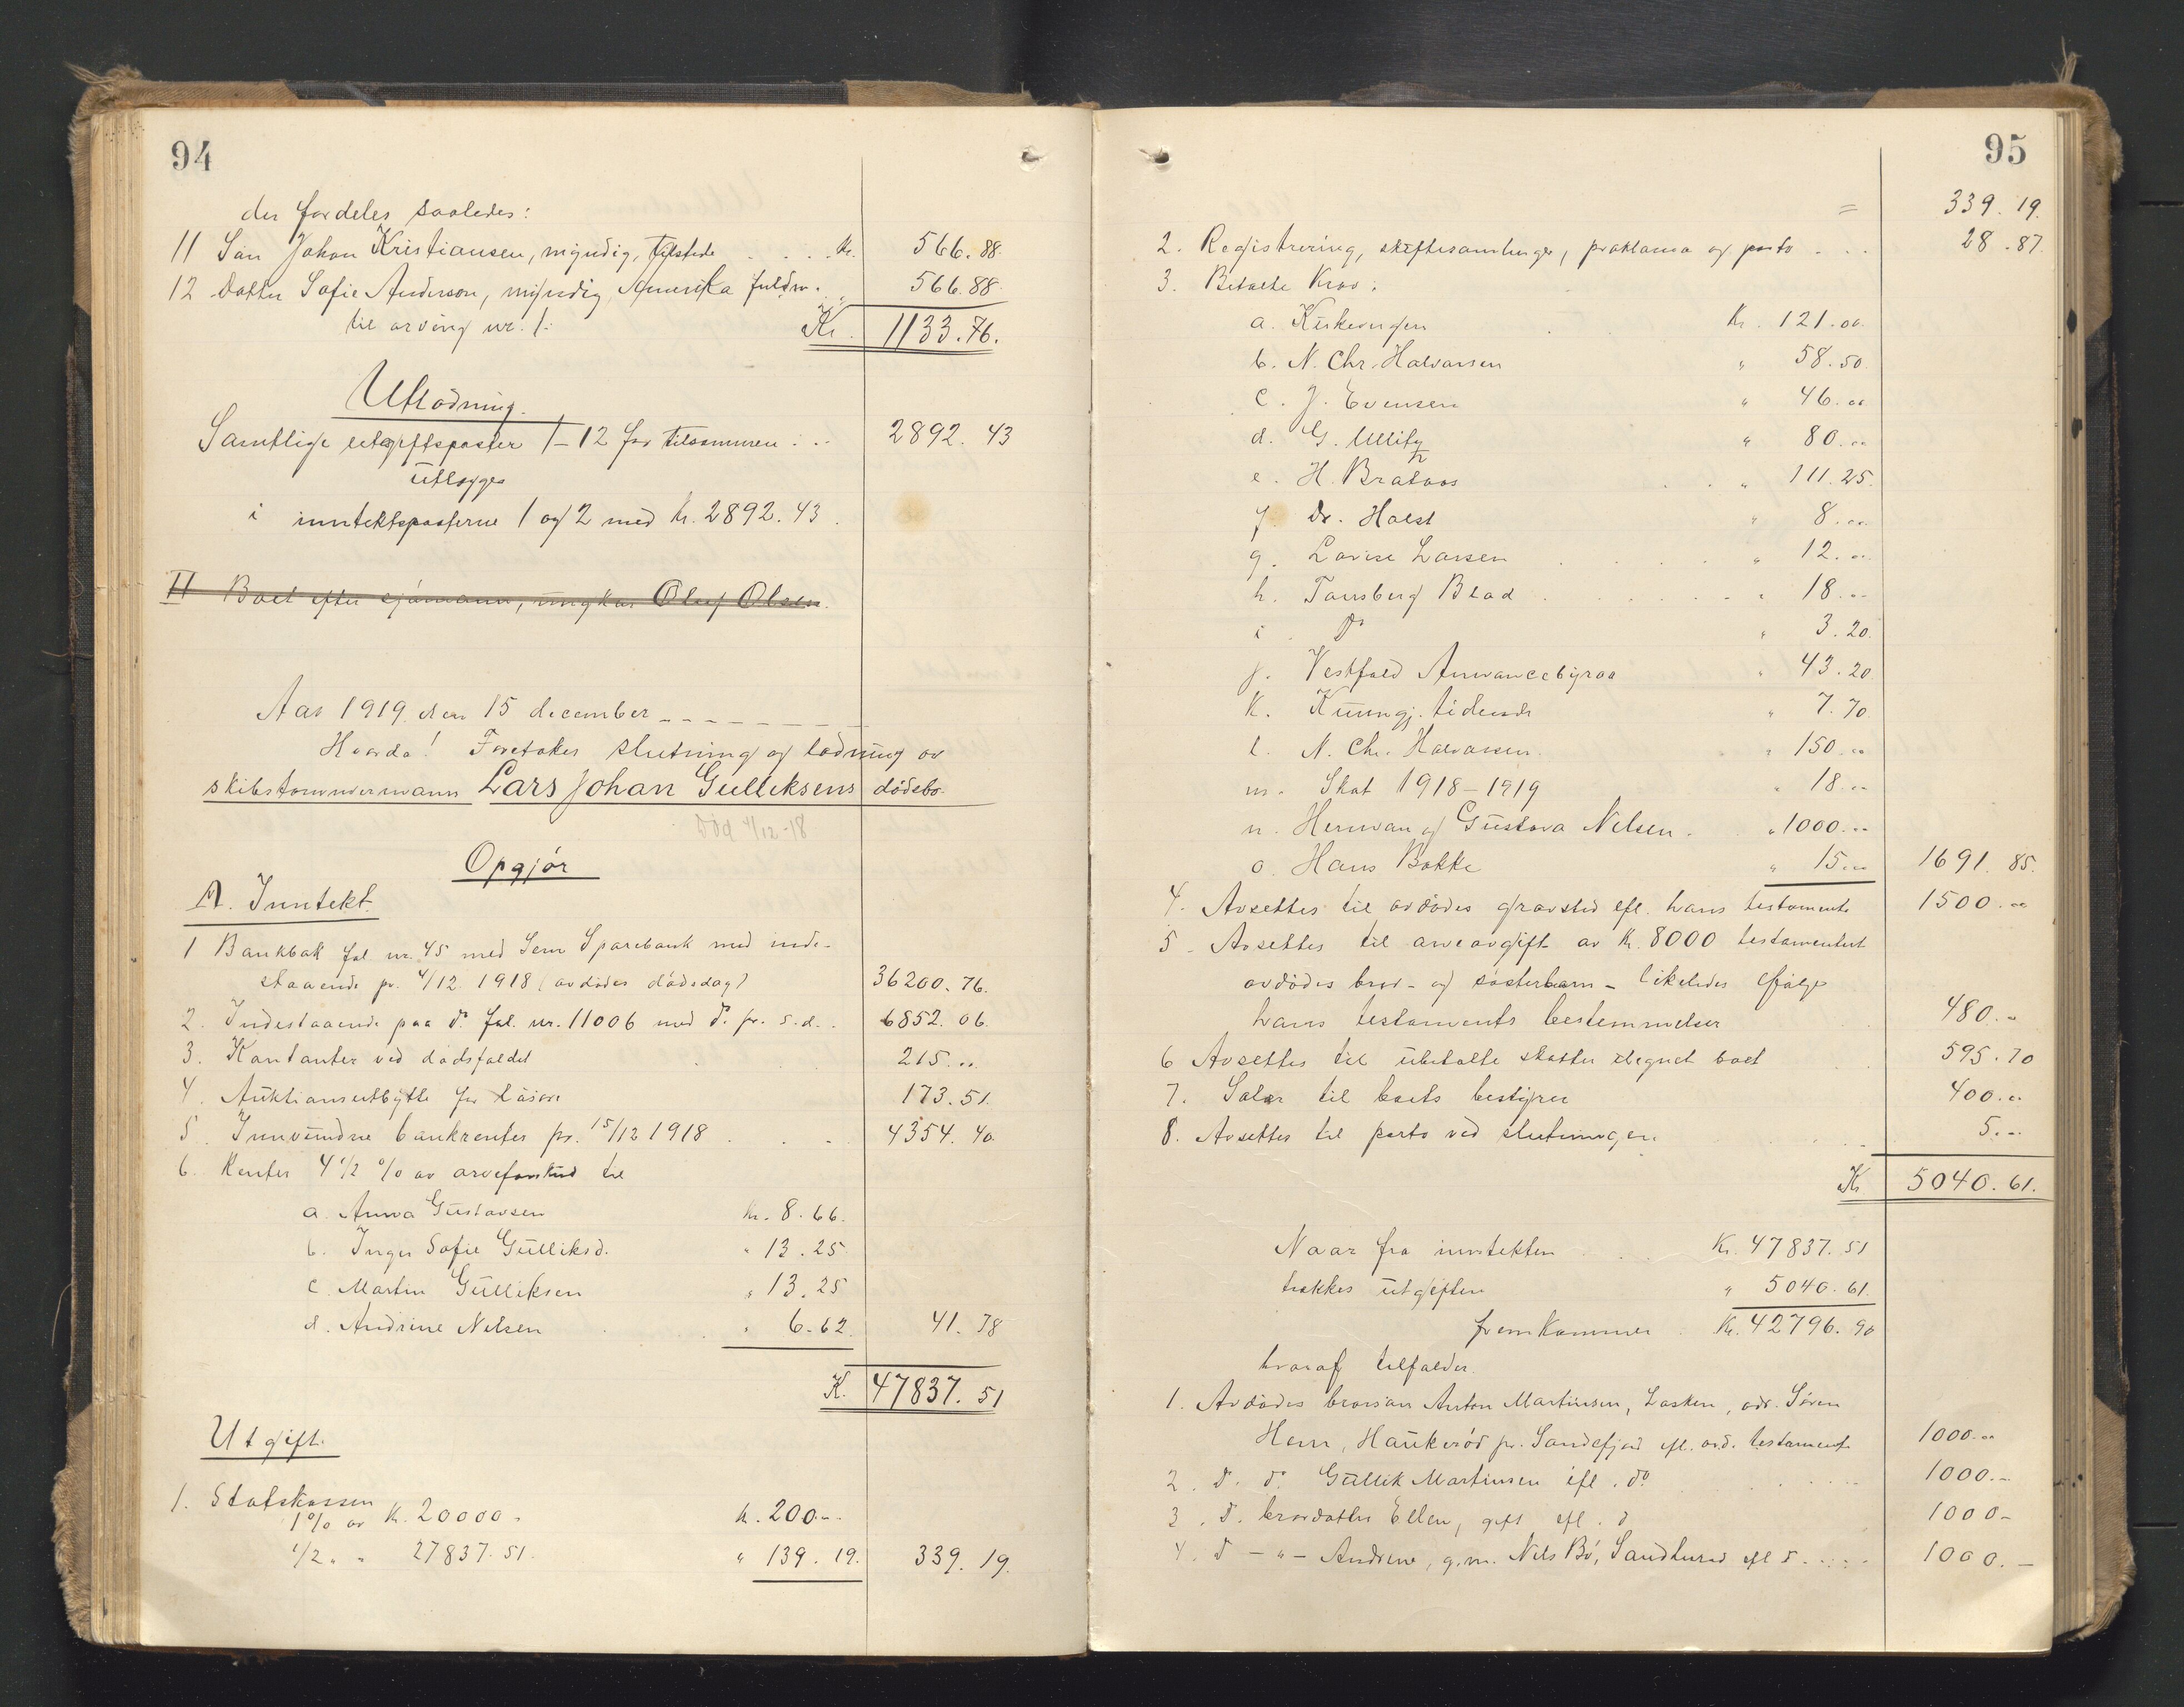 94
der fordeles saaledes:
11 Søn Johan Kristiansen, myndig, tilstede . . . Kr. 566.88.
12 Datter Sofie Anderson, myndig, Amerika fuldm. " 566.88
til arving nr. 1. Kr. 1133.76.
Utlodning.
Samtlige utgiftsposter 1–12 før tilsammen . . . 2892.43
utlægges
i inntektsposterne 1 og 2 med kr. 2892.43.
II Boet efter sjømann, ungkar Oluf Olsen.
Aar 1919 den 15 december
Hvorda! Foretokes slutning og lodning av
skibstømmermann Lars Johan Gulliksens dødsbo.
Død 4/12-18
Opgjør
A. Inntekt.
1 Bankbok fol nr. 45 med Sem Sparebank med inde-
staaende pr. 4/12 1918 (avdødes dødsdag) 36200.76.
2. Indestaaende paa do fol. nr. 11006 med do. pr. s.d. . 6852.06.
3. Kontanter ved dødsfaldet 215...
4. Auktionsutbytte for løsøre 173.51.
5. Innvundne bankrenter pr. 15/12 1918 . . . 4354.40
6. Renter 4 1/2 % av arveforskud til
a. Anna Gustavsen kr. 8.66.
b. Inger Sofie Gulliksd. " 13.25
c. Martin Gulliksen " 13.25
d. Andrine Nilsen " 6.62. 41.78
K. 47837.51
Utgift.
1. Statskassen
1% av kr. 20000.- kr. 200.--
1/2 " " 27837.51. " 139.19. 339.19.
95
= 339.19.
2. Registrering, skiftesamlinger, proklama og porto . . . 28.87.
3. Betalte krav:
a. Kirkevergen Kr. 121.00.
b. N. Chr. Halvorsen " 58.50.
c. J. Evensen " 46.00
d. G. Ullitz " 80.00
e. H. Brataas " 111.25.
f. Dr. Holst " 8.00.
g. Lovise Larsen " 12.00
h. Tønsberg Blad " 18.00
i. do " 3.20.
j. Vestfold Annoncebyraa " 43.20
k. Kunngj. tidende " 7.70
l. N. Chr. Halvorsen " 150.00
m. Skat 1918–1919 " 18.00
n. Herman og Gustava Nilsen . " 1000.--
o. Hans Bakke " 15.00 1691.85.
4. Avsettes til avdødes gravsted efl. hans testamente 1500.00
5. Avsettes til arveavgift av kr. 8000 testamentert
avdødes bror- og søsterbarn – likeledes ifølge
hans testaments bestemmelser 480.-
6 Avsettes til ubetalte skatter ilignet boet 595.70
7. Salær til boets bestyrer 400.00
8. Avsettes til porto ved slutningen. 5.--
Kr 5040.61.
Naar fra inntekten . . . Kr. 47837.51
trekkes utgiften " 5040.61.
fremkommer . Kr. 42796.90
hvoraf tilfalder.
1. Avdødes brorsøn Anton Martinsen, Lasken, adr. Søren
Hem, Haukerød pr. Sandefjord efl. avd. testament 1000.00
2. do. do. Gullik Martinsen efl. do 1000.-
3. do. brordatter Ellen, gift efl. do 1000-
4. do – " – Andrine, g.m. Nils Bø, Sandherad efl do . . . 1000.-